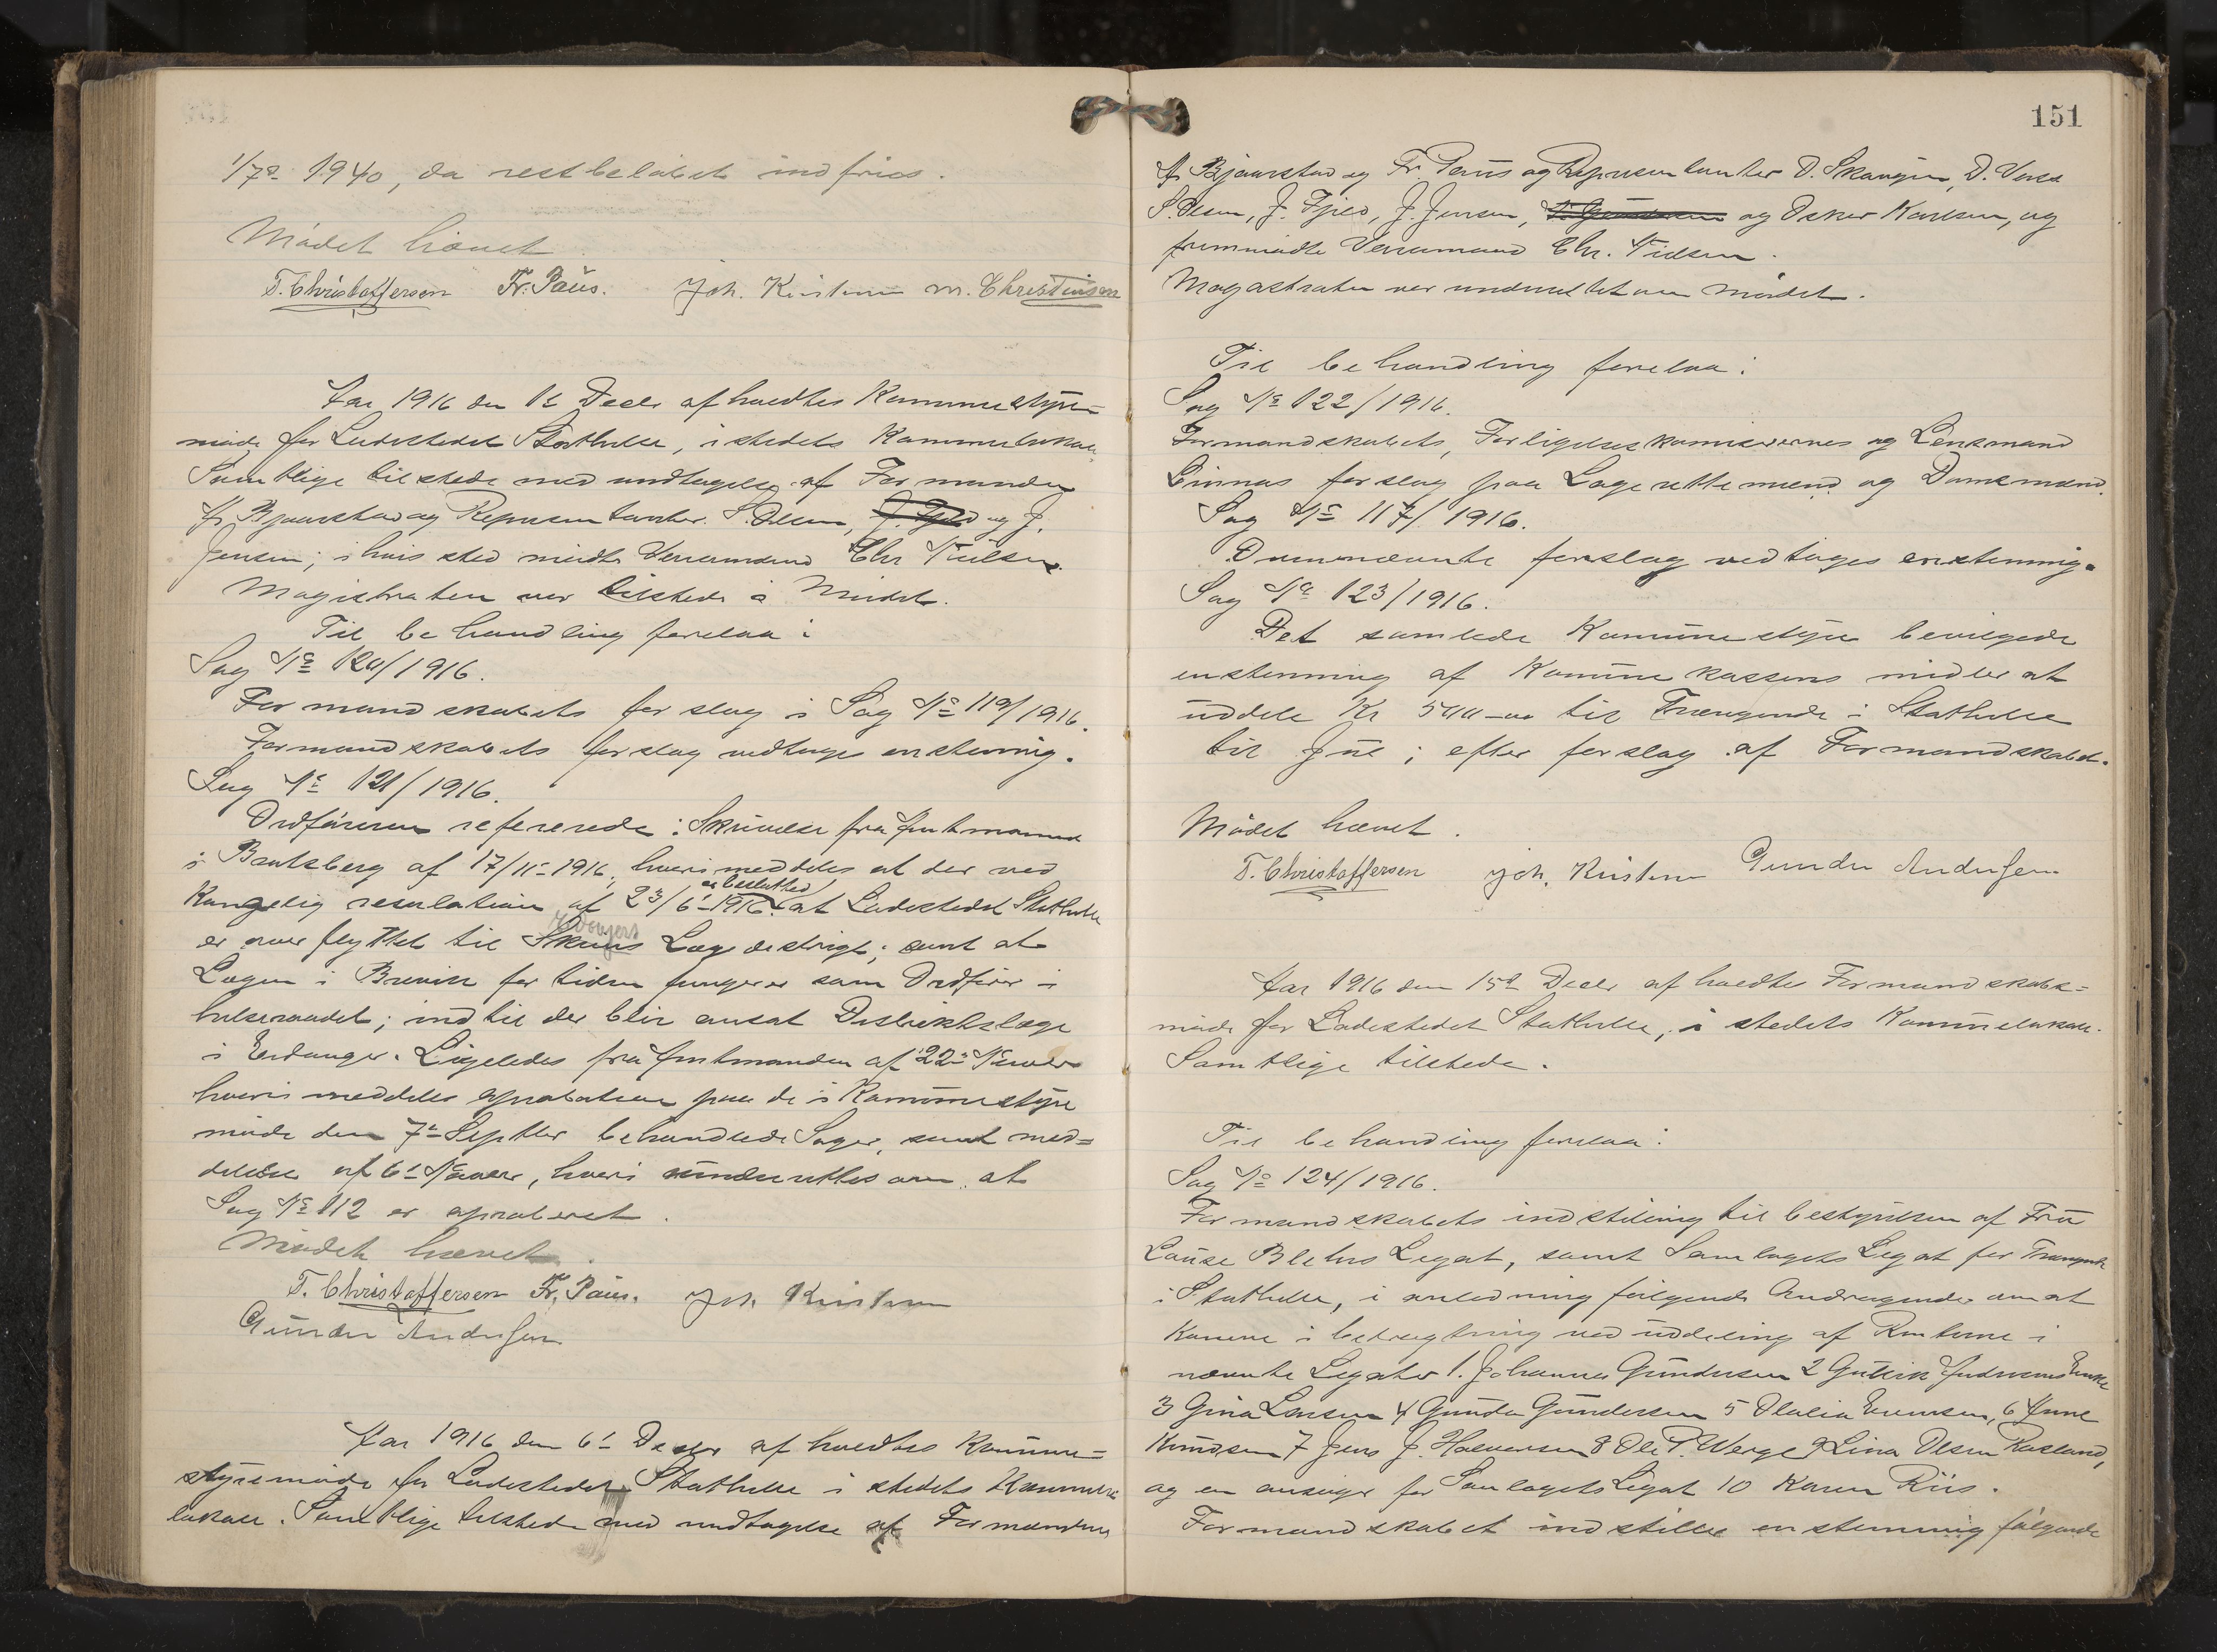 1/7de 1940, da restbelöbet indfries.
Mödet hævet.
T. Christoffersen Fr. Paus. Joh. Kristensen M. Christensen
Aar 1916 den 1ste Decbr afholdtes Kommunestyre=
möde for Ladestedet Stathelle, i stedets Kommunelokale.
Samtlige tilstede med undtagelse af Formændene
A. Bjaarstad og Repræsentanter. S. Olsen, J. Fjeld og J.
Jensen; i hvis sted mödte Veramænd Chr Nielsen.
Magistraten var tilstede i Mödet.
Til behandling forelaa:
Sag No 120/1916.
Formandskabets forslag i Sag No 119/1916.
Formandskabets forslag vedtages enstemmig.
Sag No 121/1916.
Ordföreren refererede: Skrivelse fra Amtmanden
i Bratsberg af 17/11-1916, hvori meddeles at der ved
Kongelig resolution af 23/6-1916. er besluttet at Ladestedet Stathelle
er overflyttet til Skiens Lægedistrigt; samt at
Lægen i Brevik for tiden fungerer som Ordförer i
helseraadet; indtil der blir ansat Distriktslæge
i Eidanger. Ligeledes fra Amtmanden af 22de Novbr
hvori meddeles aprobation paa de i Kommunestyre
möde den 7de Septbr behandlede Sager, samt med=
delelse af 6te Novbr, hvori underrettes om at
Sag No 112 er aproberet.
Mödet hævet.
T. Christoffersen Fr. Paus. Joh. Kristensen
Gunder Andersen
Aar 1916 den 6te Decbr afholdtes Kommune=
styremöde for Ladestedet Stathelle i stedets Kommune
lokale. Samtlige tilstede med undtagelse af Formændene
151
A. Bjaarstad og Fr. Paus og Repræsentanter O. Skaugen, D. Vess
S. Olsen, J. Fjeld, J. Jensen, og Oskar Karlsen, og
fremmödte Veramand Chr. Nielsen.
Magistraten var underrettet om Mödet.
Til behandling forelaa:
Sag No 122/1916.
Formandskabets, Forligelseskomiserernes og Lensmand
Linnas forslag paa Lagrettemænd og Domsmænd.
Sag No 117/1916.
Ovennævnte forslag vedtages enstemmig.
Sag No 123/1916.
Det samlede Kommunestyre bevilgede
enstemmig af Kommunekassens midler at
uddele Kr 500-00 til Trængende i Stathelle
til Jul; efter forslag af Formandskabet.
Mödet hævet.
T. Christoffersen Joh. Kristensen Gunder Andersen
Aar 1916 den 15de Decbr afholdtes Formandskabs=
möde for Ladestedet Stathelle, i stedets Kommunelokale.
Samtlige tilstede.
Til behandling forelaa:
Sag No 124/1916.
Formandskabets indstilling til bestyrelsen af Fru
Louise Blehrs Legat, samt Samlagets Legat for Trængende
i Stathelle, i anledning fölgende Andragender om at
komme i betragtning ved uddeling af Renterne i
nævnte Legater 1. Johannes Gundersen 2 Gulleik Andersens Enke
3 Gina Larsen 4 Gunda Gundersen 5 Olalia Evensen, 6 Anne
Knudsen 7 Jens J. Halvorsen 8 Ole P. Werge 9 Lina Olsen Rasland,
og en ansöger for Samlagets Legat 10 Karen Riis.
Formandskabet indstiller enstemmig fölgende